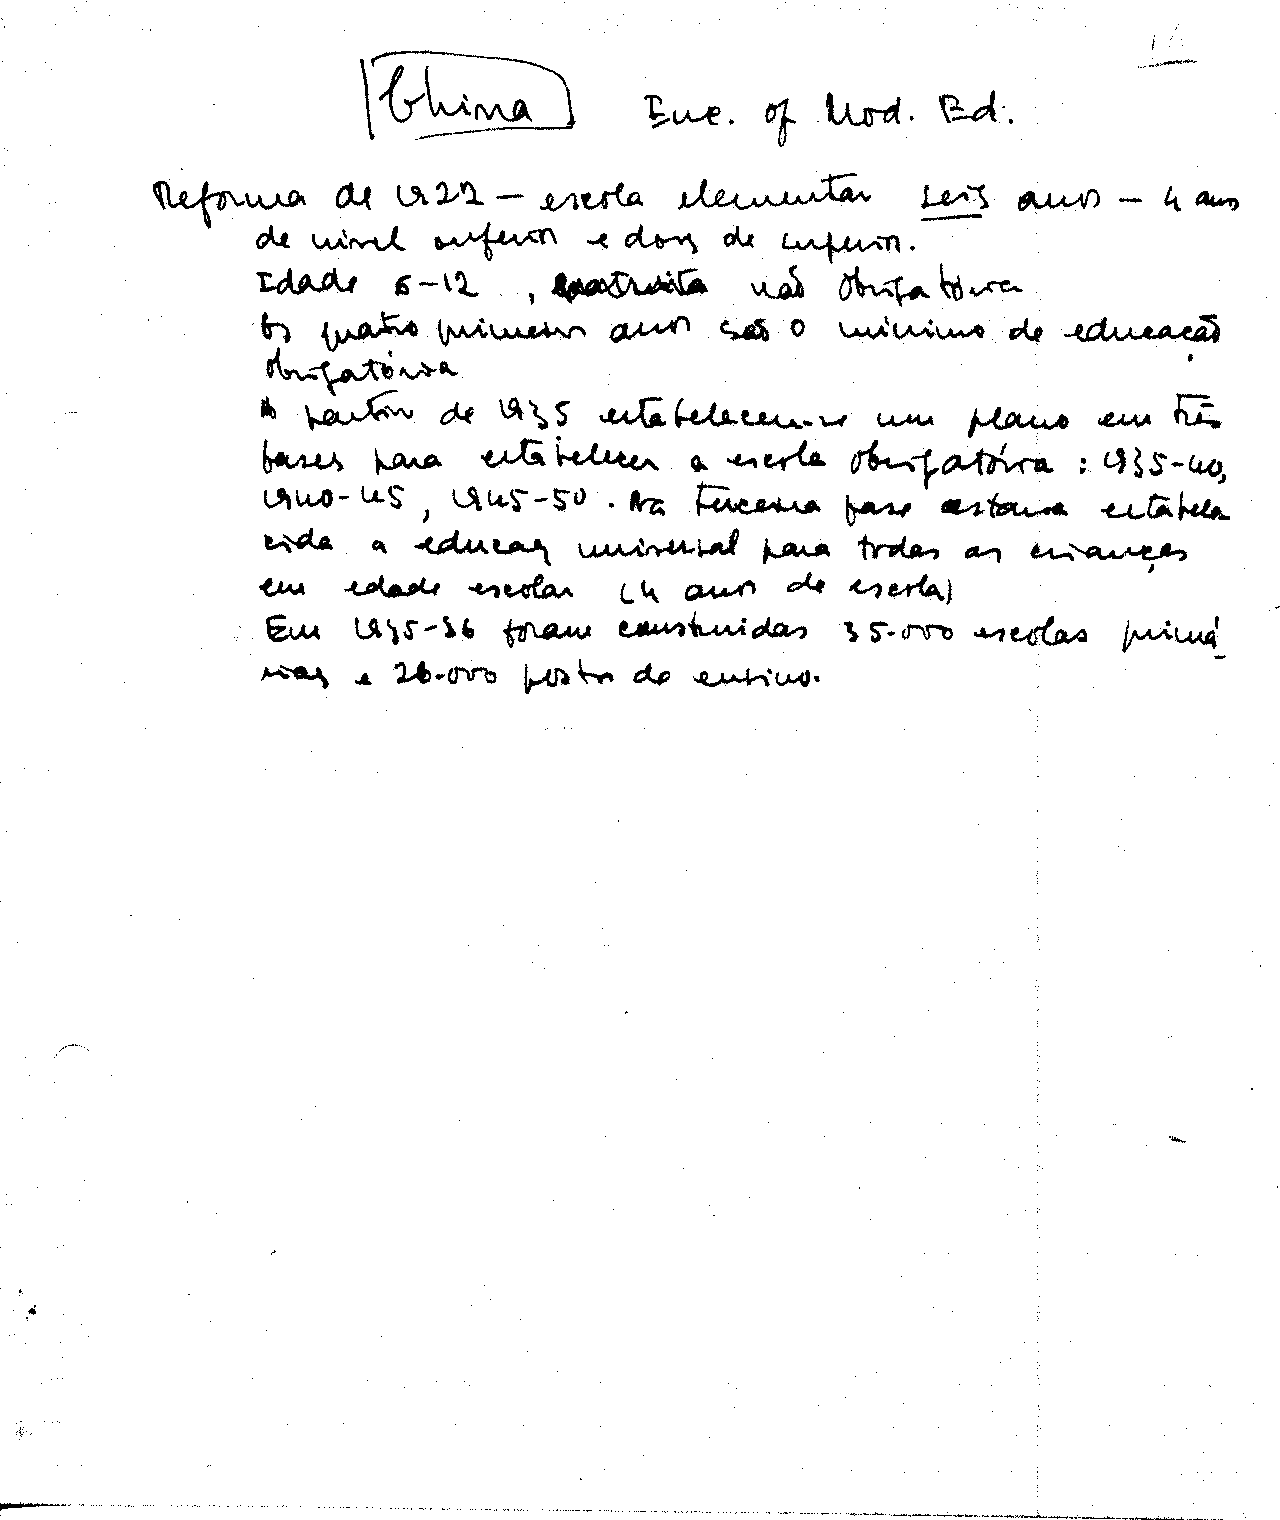 China Enc. of Mod. Ed.
Reforma de 1922 – escola elementar seis anos – 4 anos
de nivel inferior e dois de superior.
Idade 6-12 , gratuita não obrigatória
Os quatro primeiros anos são o minimo de educação
obrigatória
A partir de 1935 estabeleceu-se um plano em três
fases para estabelecer a escola obrigatória : 1935-40,
1940-45, 1945-50. Na terceira fase estava estabele
cida a educação universal para todas as crianças
em edade escolar (4 anos de escola)
Em 1935-36 foram construidas 35.000 escolas primá-
rias e 26.000 postos de ensino.